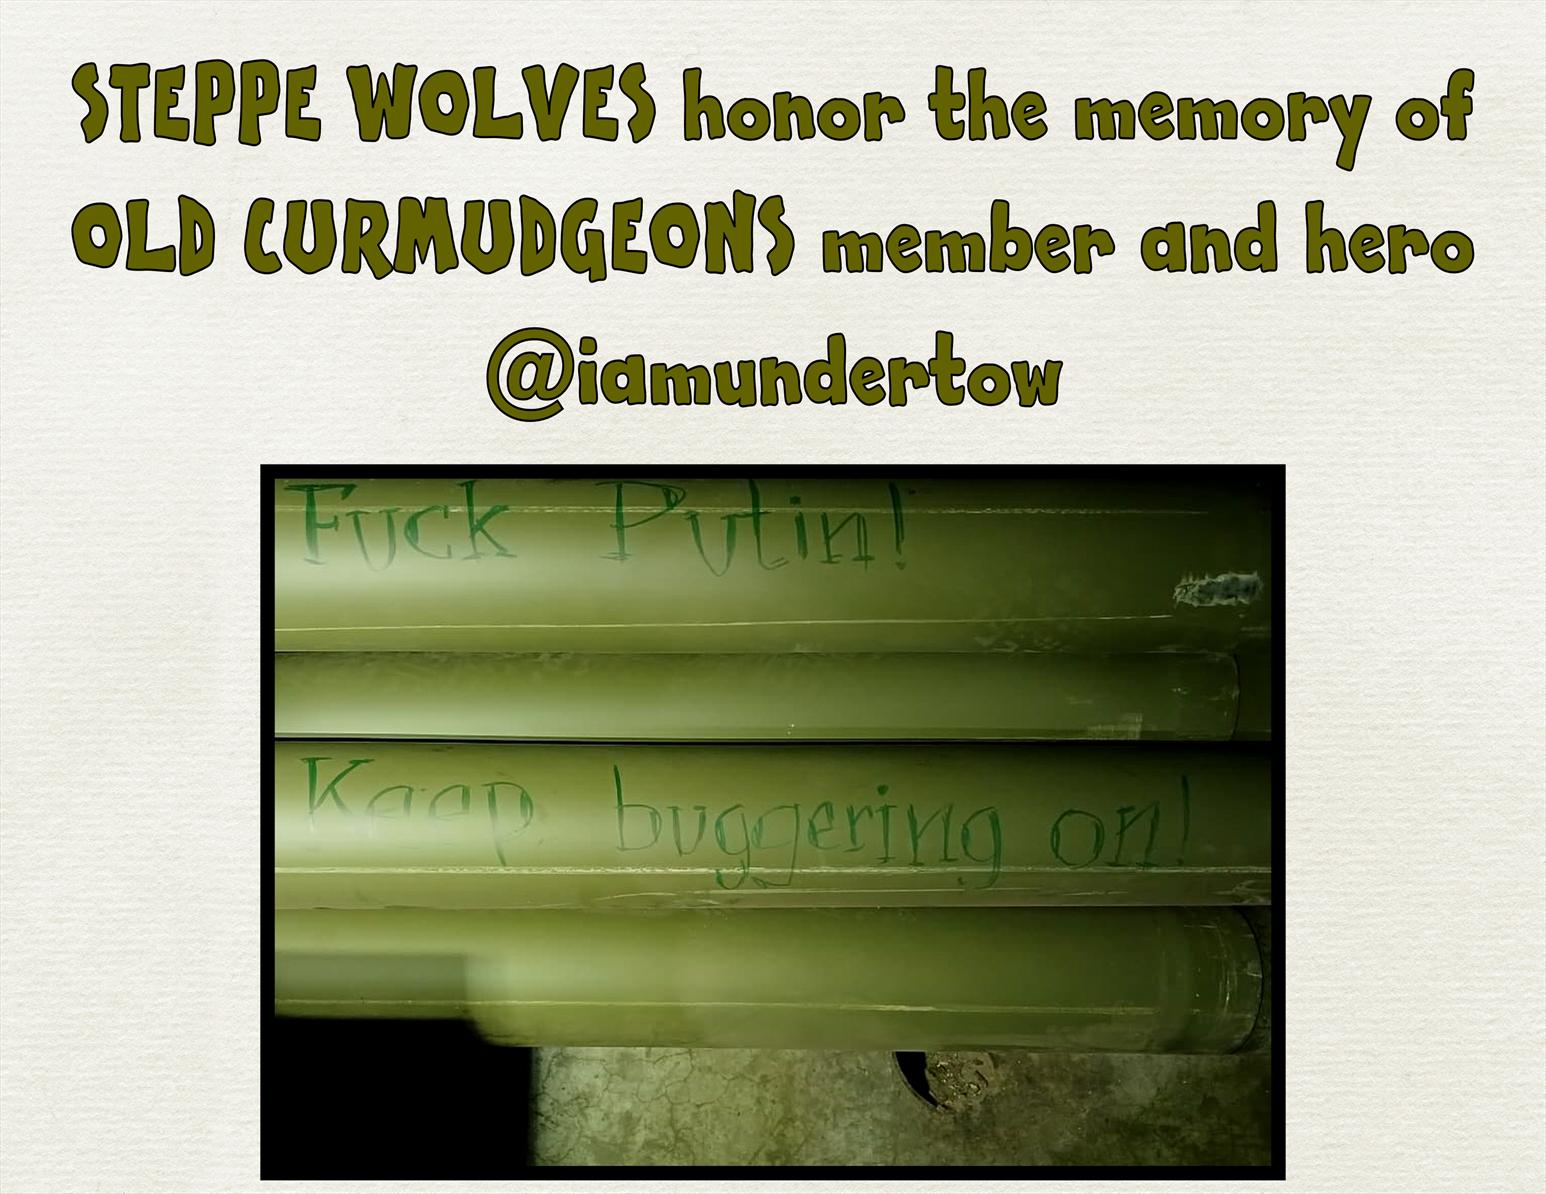 STEPPE WOLVES honor the memory of
OLD CURMUDGEONS member and hero
@iamundertow
Fuck Putin!
Keep buggering on!